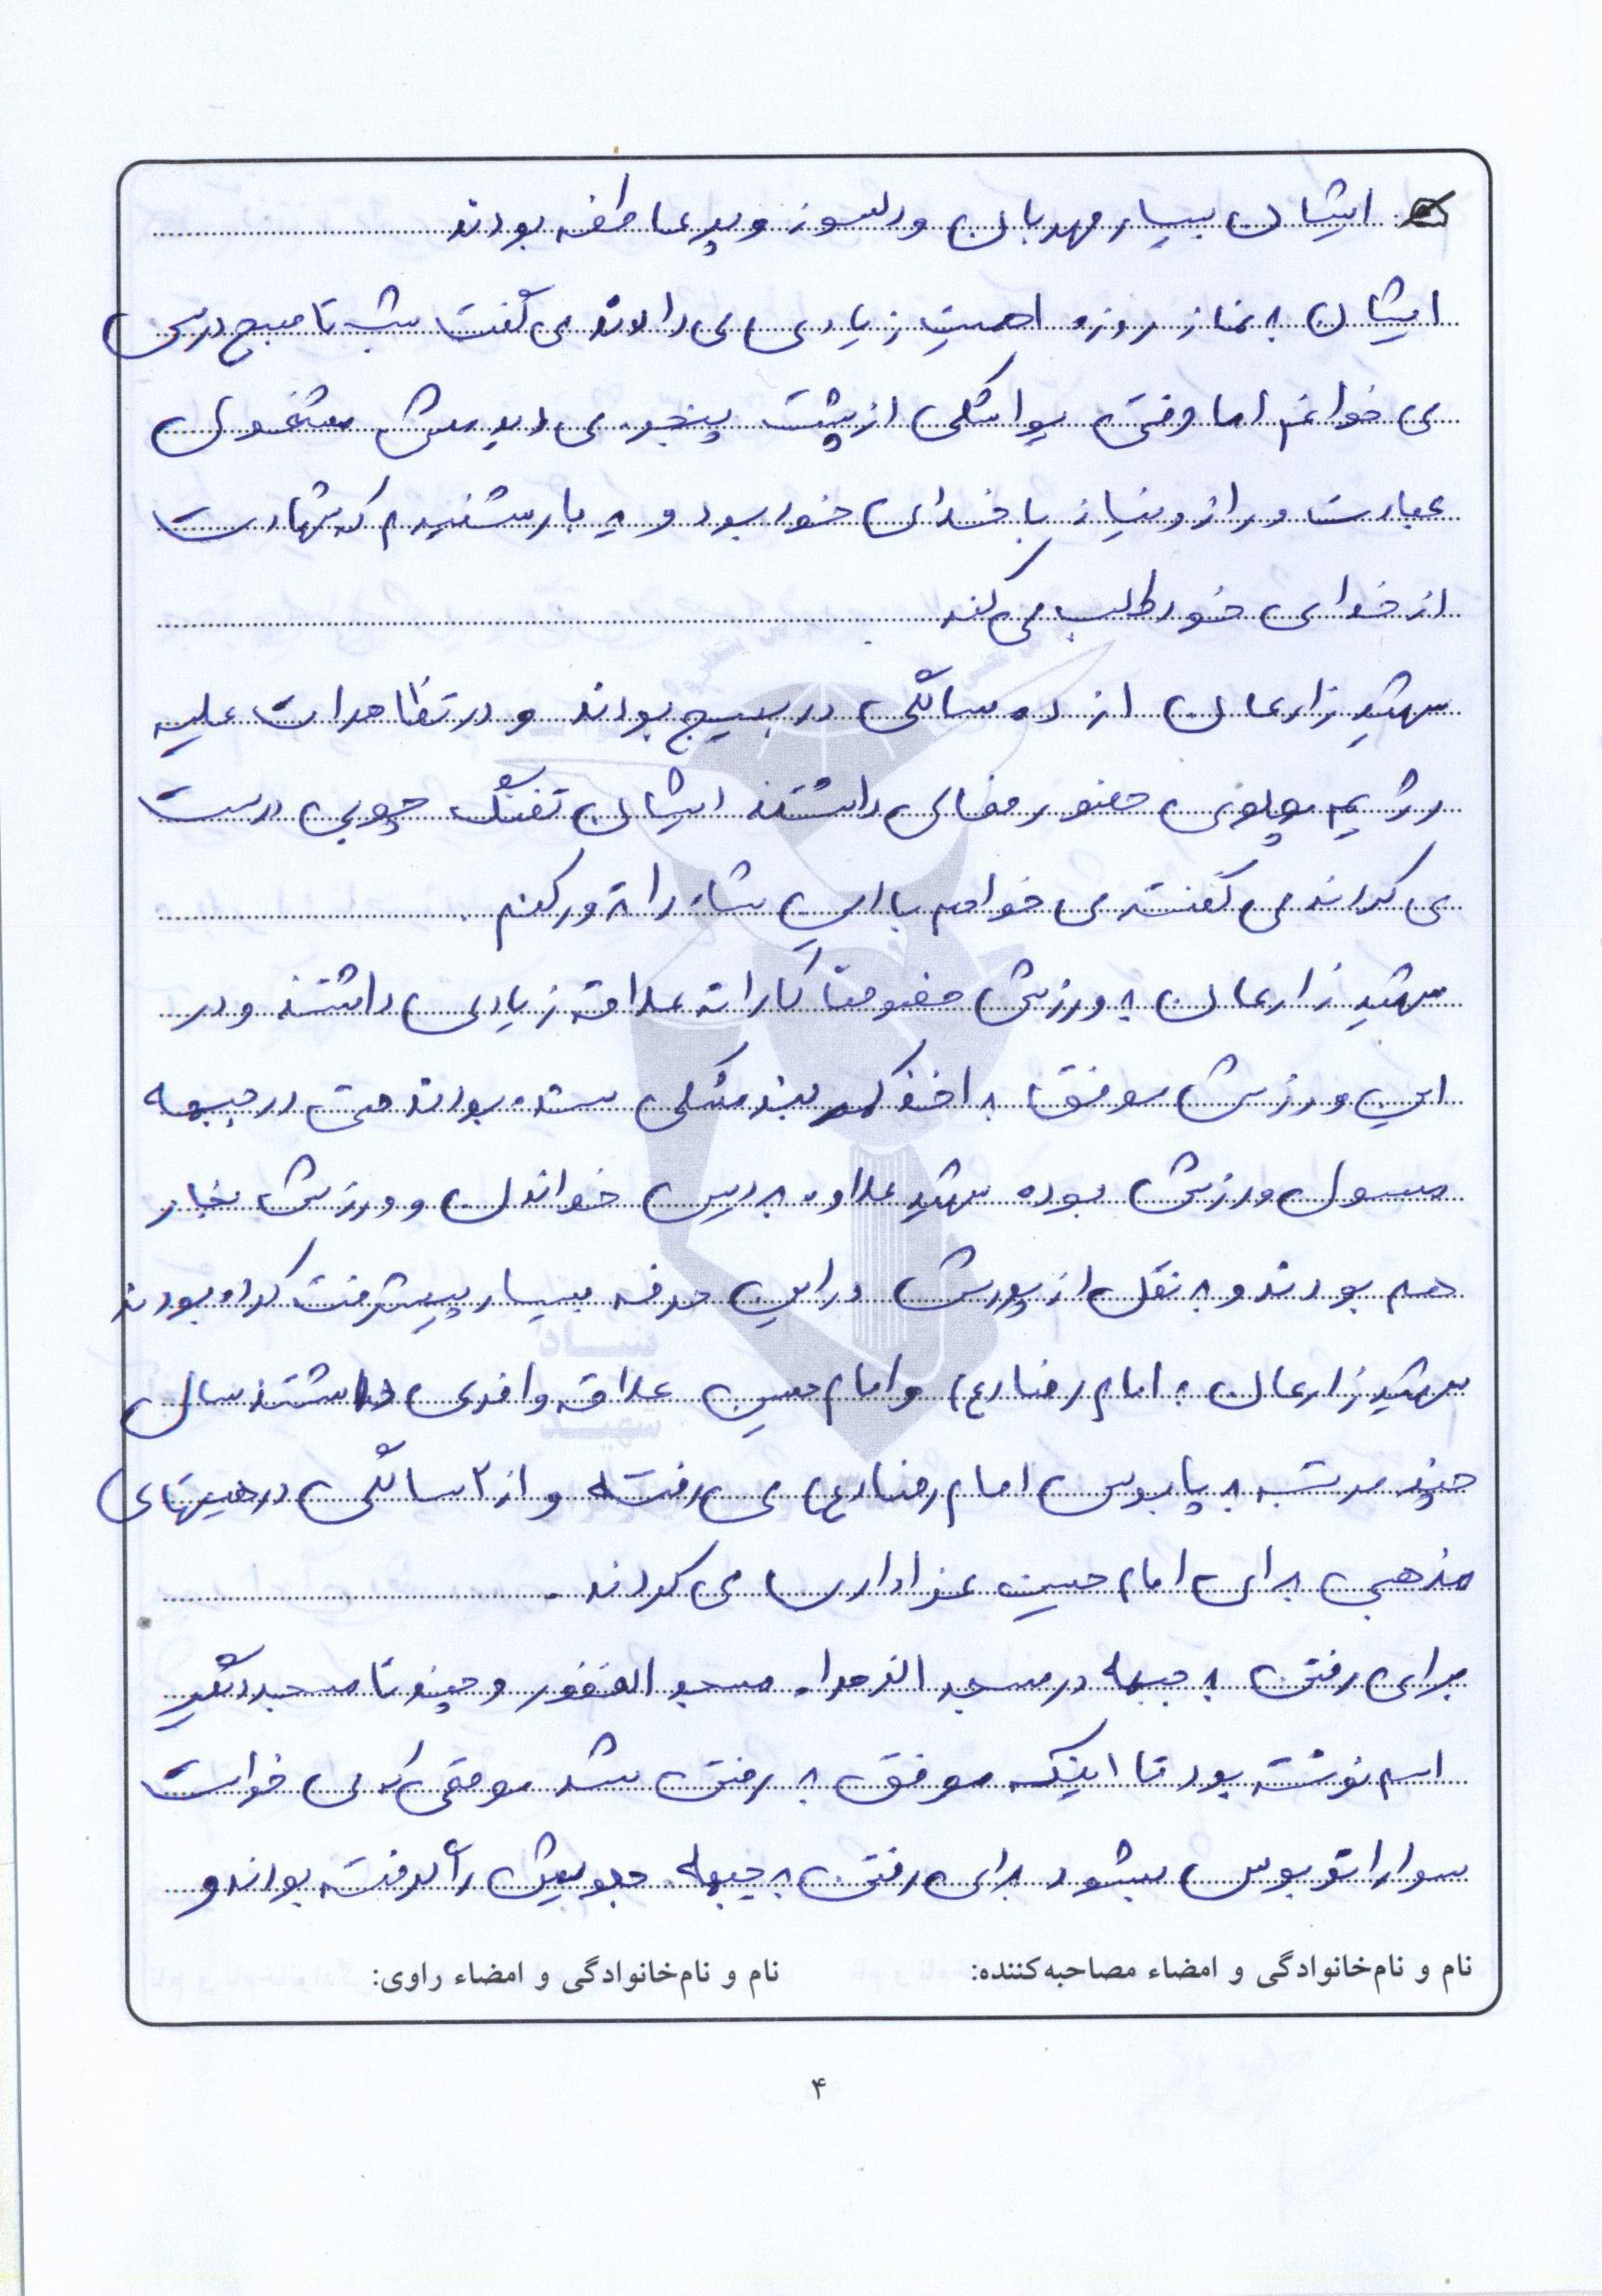 ایشان بسیار مهربان و دلسوز و پر عاطفه بودند
ایشان به نماز روزه اهمیت زیادی می دادند می گفت شب تا صبح درس
می خوانم اما وقتی یواشکی از پشت پنجره می دیدمش مشغول
عبادت و راز و نیاز با خدای خود بود و یه بار شنیدم که شهادت
از خدای خود طلب می کند
شهید زارعان از ده سالگی در بسیج بودند و در تظاهرات علیه
رژیم پهلوی حضور فعالی داشتند ایشان تفنگ چوبی درست
می کردند می گفتند می خواهم با این شاه را ترور کنم.
شهید زارعان به ورزش خصوصاً کاراته علاقه زیادی داشتند و در
این ورزش موفق به اخذ کمر بند مشکی شده بودند حتی در جبهه
مسول ورزش بوده شهید علاوه به درس خواندن و ورزش نجار
هم بودند و به نقل از پدرش در این حرفه بسیار پیشرفت کرده بودند
شهید زارعان به امام رضا (ع) و امام حسین علاقه وافری داشتند سال
چند مرتبه به پابوس امام رضا (ع) می رفته و از ۲ سالگی در هیتهای
مذهبی برای امام حسین عزاداری می کردند.
برای رفتن به جبهه در مسجد الزهرا، مسجد الغفور و چند تا مسجد دیگر
اسم نوشته بود تا اینکه موفق به رفتن شد موقعی که می خواست
سوار اتوبوس بشود برای رفتن به جبهه جلویش را گرفته بودند و
نام و نام‌خانوادگی و امضاء مصاحبه‌کننده: نام و نام‌خانوادگی و امضاء راوی:
۴